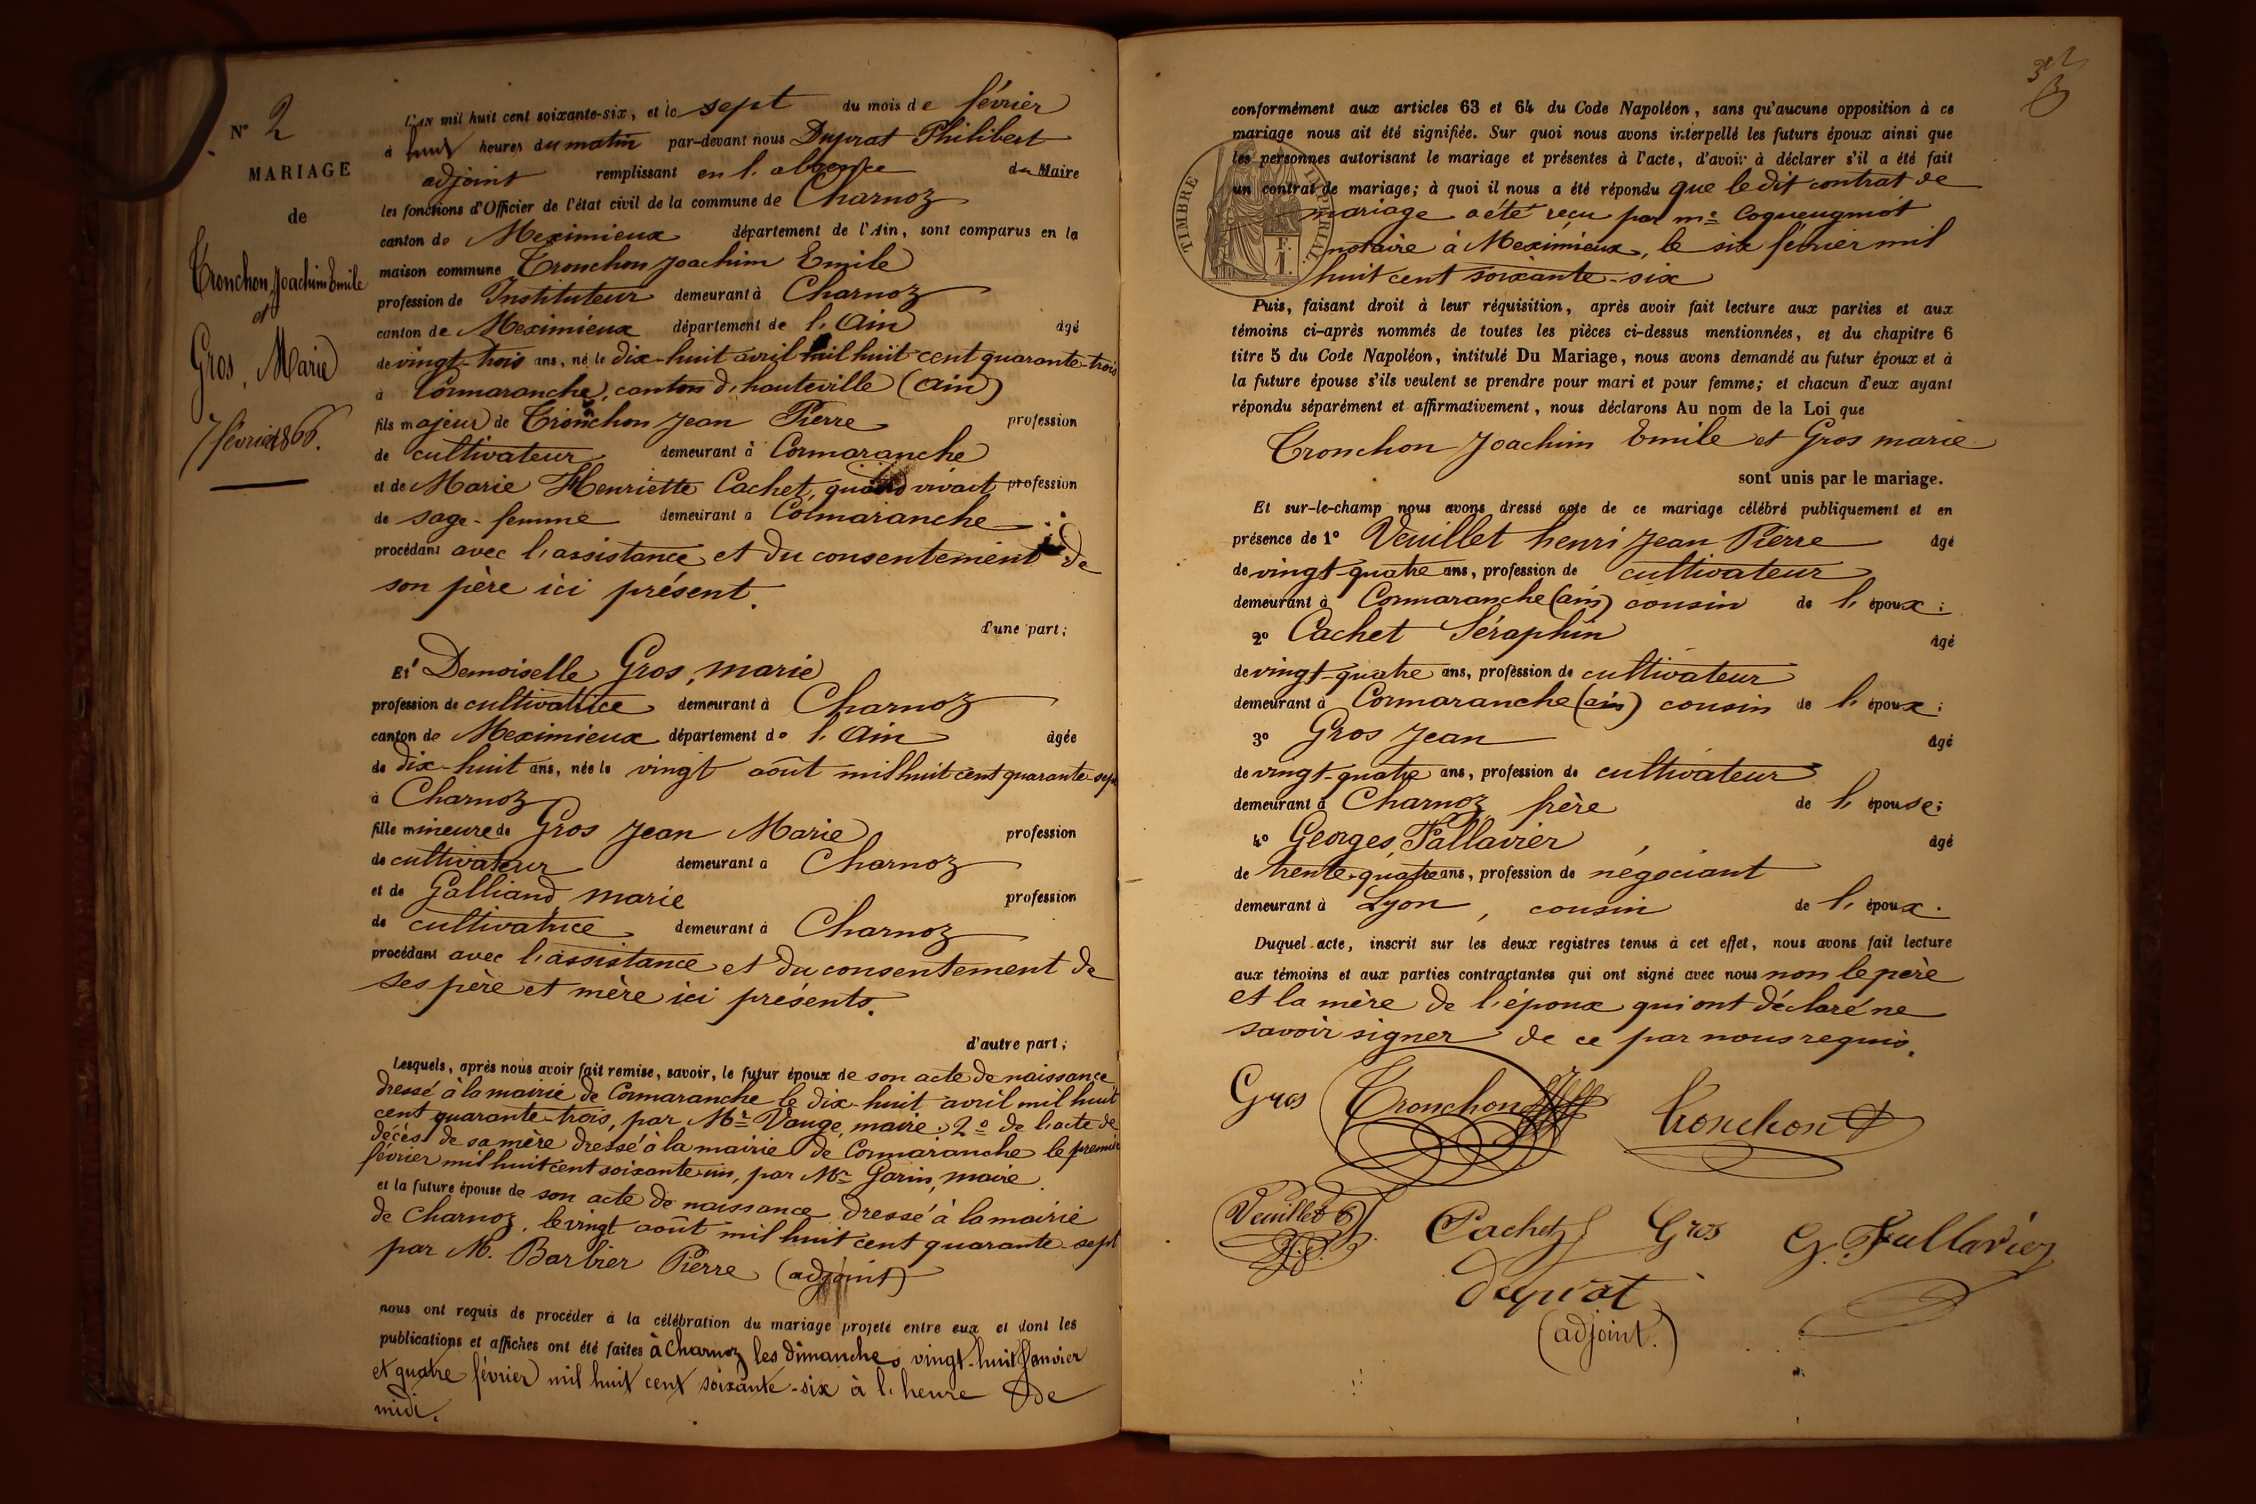 N° 2
MARIAGE
de
Tronchon, Joachim Emile
et
Gros, Marie
7 février 1866.
L'AN mil huit cent soixante-six, et le sept du mois de février
à huit heures du matin par-devant nous Duprat Philibert
adjoint remplissant en l'absence du Maire
les fonctions d'Officier de l'état civil de la commune de Charnoz
canton de Meximieux département de l'Ain, sont comparus en la
maison commune Tronchon Joachim Emile
profession de Instituteur demeurant à Charnoz
canton de Meximieux département de l'Ain âgé
de vingt-trois ans, né le dix-huit avril mil huit cent quarante-trois
à Cormaranche, canton d'hauteville (Ain)
fils majeur de Tronchon Jean Pierre profession
de cultivateur demeurant à Cormaranche
et de Marie Henriette Cachet, quand vivait profession
de sage-femme demeurant à Cormaranche
procédant avec l'assistance et du consentement de
son père ici présent.
d'une part;
Et Demoiselle Gros, marie
profession de cultivatrice demeurant à Charnoz
canton de Meximieux département de l'Ain âgée
de dix-huit ans, née le vingt août mil huit cent quarante-sept
à Charnoz
fille mineure de Gros Jean Marie profession
de cultivateur demeurant à Charnoz
et de Galliand, marie profession
de cultivatrice demeurant à Charnoz
procédant avec l'assistance et du consentement de
ses père et mère ici présents.
d'autre part;
Lesquels, après nous avoir fait remise, savoir, le futur époux de son acte de naissance
dressé à la mairie de Cormaranche le dix-huit avril mil huit
cent quarante-trois, par Mr Vauge, maire, 2° de l'acte de
décès de sa mère dressé à la mairie de Cormaranche le premier
février mil huit cent soixante un, par Mr Garin, maire.
et la future épouse de son acte de naissance dressé à la mairie
de Charnoz, le vingt août mil huit cent quarante-sept
par M. Barbier Pierre (adjoint)
nous ont requis de procéder à la célébration du mariage projeté entre eux et dont les
publications et affiches ont été faites à Charnoz les dimanches vingt-huit Janvier
et quatre février mil huit cent soixante-six à l'heure de
midi.
32
conformément aux articles 63 et 64 du Code Napoléon, sans qu'aucune opposition à ce
mariage nous ait été signifiée. Sur quoi nous avons interpellé les futurs époux ainsi que
les personnes autorisant le mariage et présentes à l'acte, d'avoir à déclarer s'il a été fait
un contrat de mariage; à quoi il nous a été répondu que le dit contrat de
mariage a été reçu par me Coqueugniot
notaire à Meximieux, le six février mil
huit cent soixante-six
TIMBRE IMPERIAL
Puis, faisant droit à leur réquisition, après avoir fait lecture aux parties et aux
témoins ci-après nommés de toutes les pièces ci-dessus mentionnées, et du chapitre 6
titre 5 du Code Napoléon, intitulé Du Mariage, nous avons demandé au futur époux et à
la future épouse s'ils veulent se prendre pour mari et pour femme; et chacun d'eux ayant
répondu séparément et affirmativement, nous déclarons Au nom de la Loi que
Tronchon Joachim Emile et Gros marie
sont unis par le mariage.
Et sur-le-champ nous avons dressé acte de ce mariage célébré publiquement et en
présence de 1° Veuillet henri Jean Pierre âgé
de vingt-quatre ans, profession de cultivateur
demeurant à Cormaranche (ain) cousin de l'époux;
2° Cachet Séraphin âgé
de vingt-quatre ans, profession de cultivateur
demeurant à Cormaranche (ain) cousin de l'époux;
3° Gros Jean âgé
de vingt-quatre ans, profession de cultivateur
demeurant à Charnoz, frère de l'épouse;
4° Georges, Fallavier âgé
de trente-quatre ans, profession de négociant
demeurant à Lyon, cousin de l'époux.
Duquel acte, inscrit sur les deux registres tenus à cet effet, nous avons fait lecture
aux témoins et aux parties contractantes qui ont signé avec nous non le père
et la mère de l'époux qui ont déclaré ne
savoir signer de ce par nous requis.
Gros Tronchon Tronchon
Veuillet Cachet Gros G. Fallavier
duprat
(adjoint.)